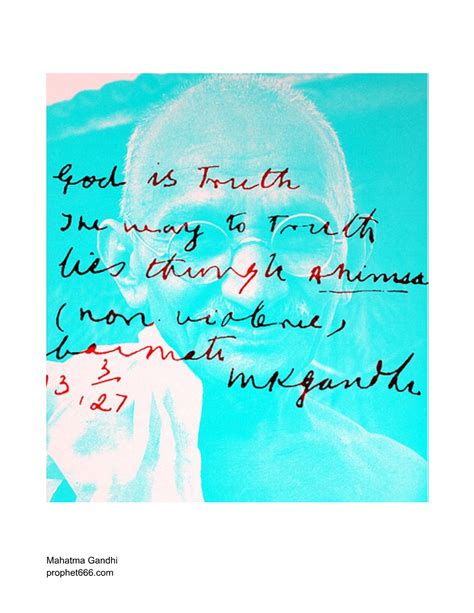 God is Truth
The way to Truth
lies through Ahimsa
(non-violence)
Sabarmati
13 3/'27 MKGandhi
Mahatma Gandhi
prophet666.com